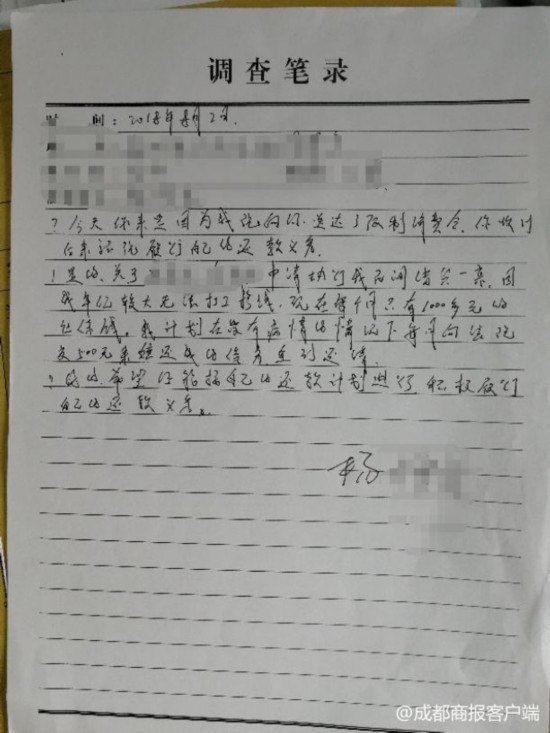 调查笔录
时 间：2018年8月2日.
？今天你来是因为我院向你送达了限制消费令，你收到
后来法院履行自己的还款义务
！是的，关于 申请执行我民间借贷一案，因
我年纪较大无法打工挣钱，现在每个月只有1000多元的
社保钱，我计划在没有病情的情况下每月向法院
交500元来偿还我的债务直到还清.
？ 希望你能按自己的还款计划 积极履行
自己的还款义务。
杨
@成都商报客户端